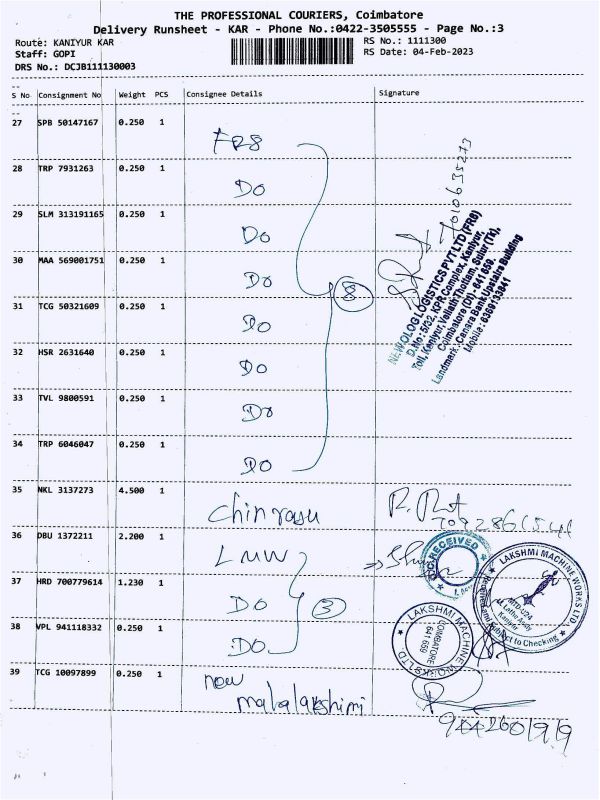 THE PROFESSIONAL COURIERS, Coimbatore
Delivery Runsheet - KAR - Phone No.:0422-3505555 - Page No.:3
Route: KANIYUR KAR
RS No.: 1111300
Staff: GOPI
RS Date: 04-Feb-2023
DRS No.: DCJB111130003
S No Consignment No Weight PCS Consignee Details Signature
27 SPB 50147167 0.250 1 FR8
28 TRP 7931263 0.250 1 Do
29 SLM 313191165 0.250 1 Do
30 MAA 569001751 0.250 1 Do
31 TCG 50321609 0.250 1 Do
32 HSR 2631640 0.250 1 Do
33 TVL 9800591 0.250 1 Do
34 TRP 6046047 0.250 1 Do
8
7010635273
NEWOLOG LOGISTICS PVT LTD (FR8)
D.No: 5/32, KPR Complex, Kaniyur,
Toll, Kaniyur, Thottam, Sulur (Tk),
Coimbatore (Dt) - 641 659.
Landmark: Canara Bank Upstairs Building
Mobile: 6369133841
35 NKL 3137273 4.500 1 Chinrasu
36 DBU 1372211 2.200 1 LMW
37 HRD 700779614 1.230 1 Do
38 VPL 941118332 0.250 1 Do
3
RECEIVED
LAKSHMI MACHINE WORKS LTD.
Subject to Checking
LAKSHMI MACHINE WORKS LTD.
COIMBATORE
641 659
39 TCG 10097899 0.250 1 new
mahalakshimi